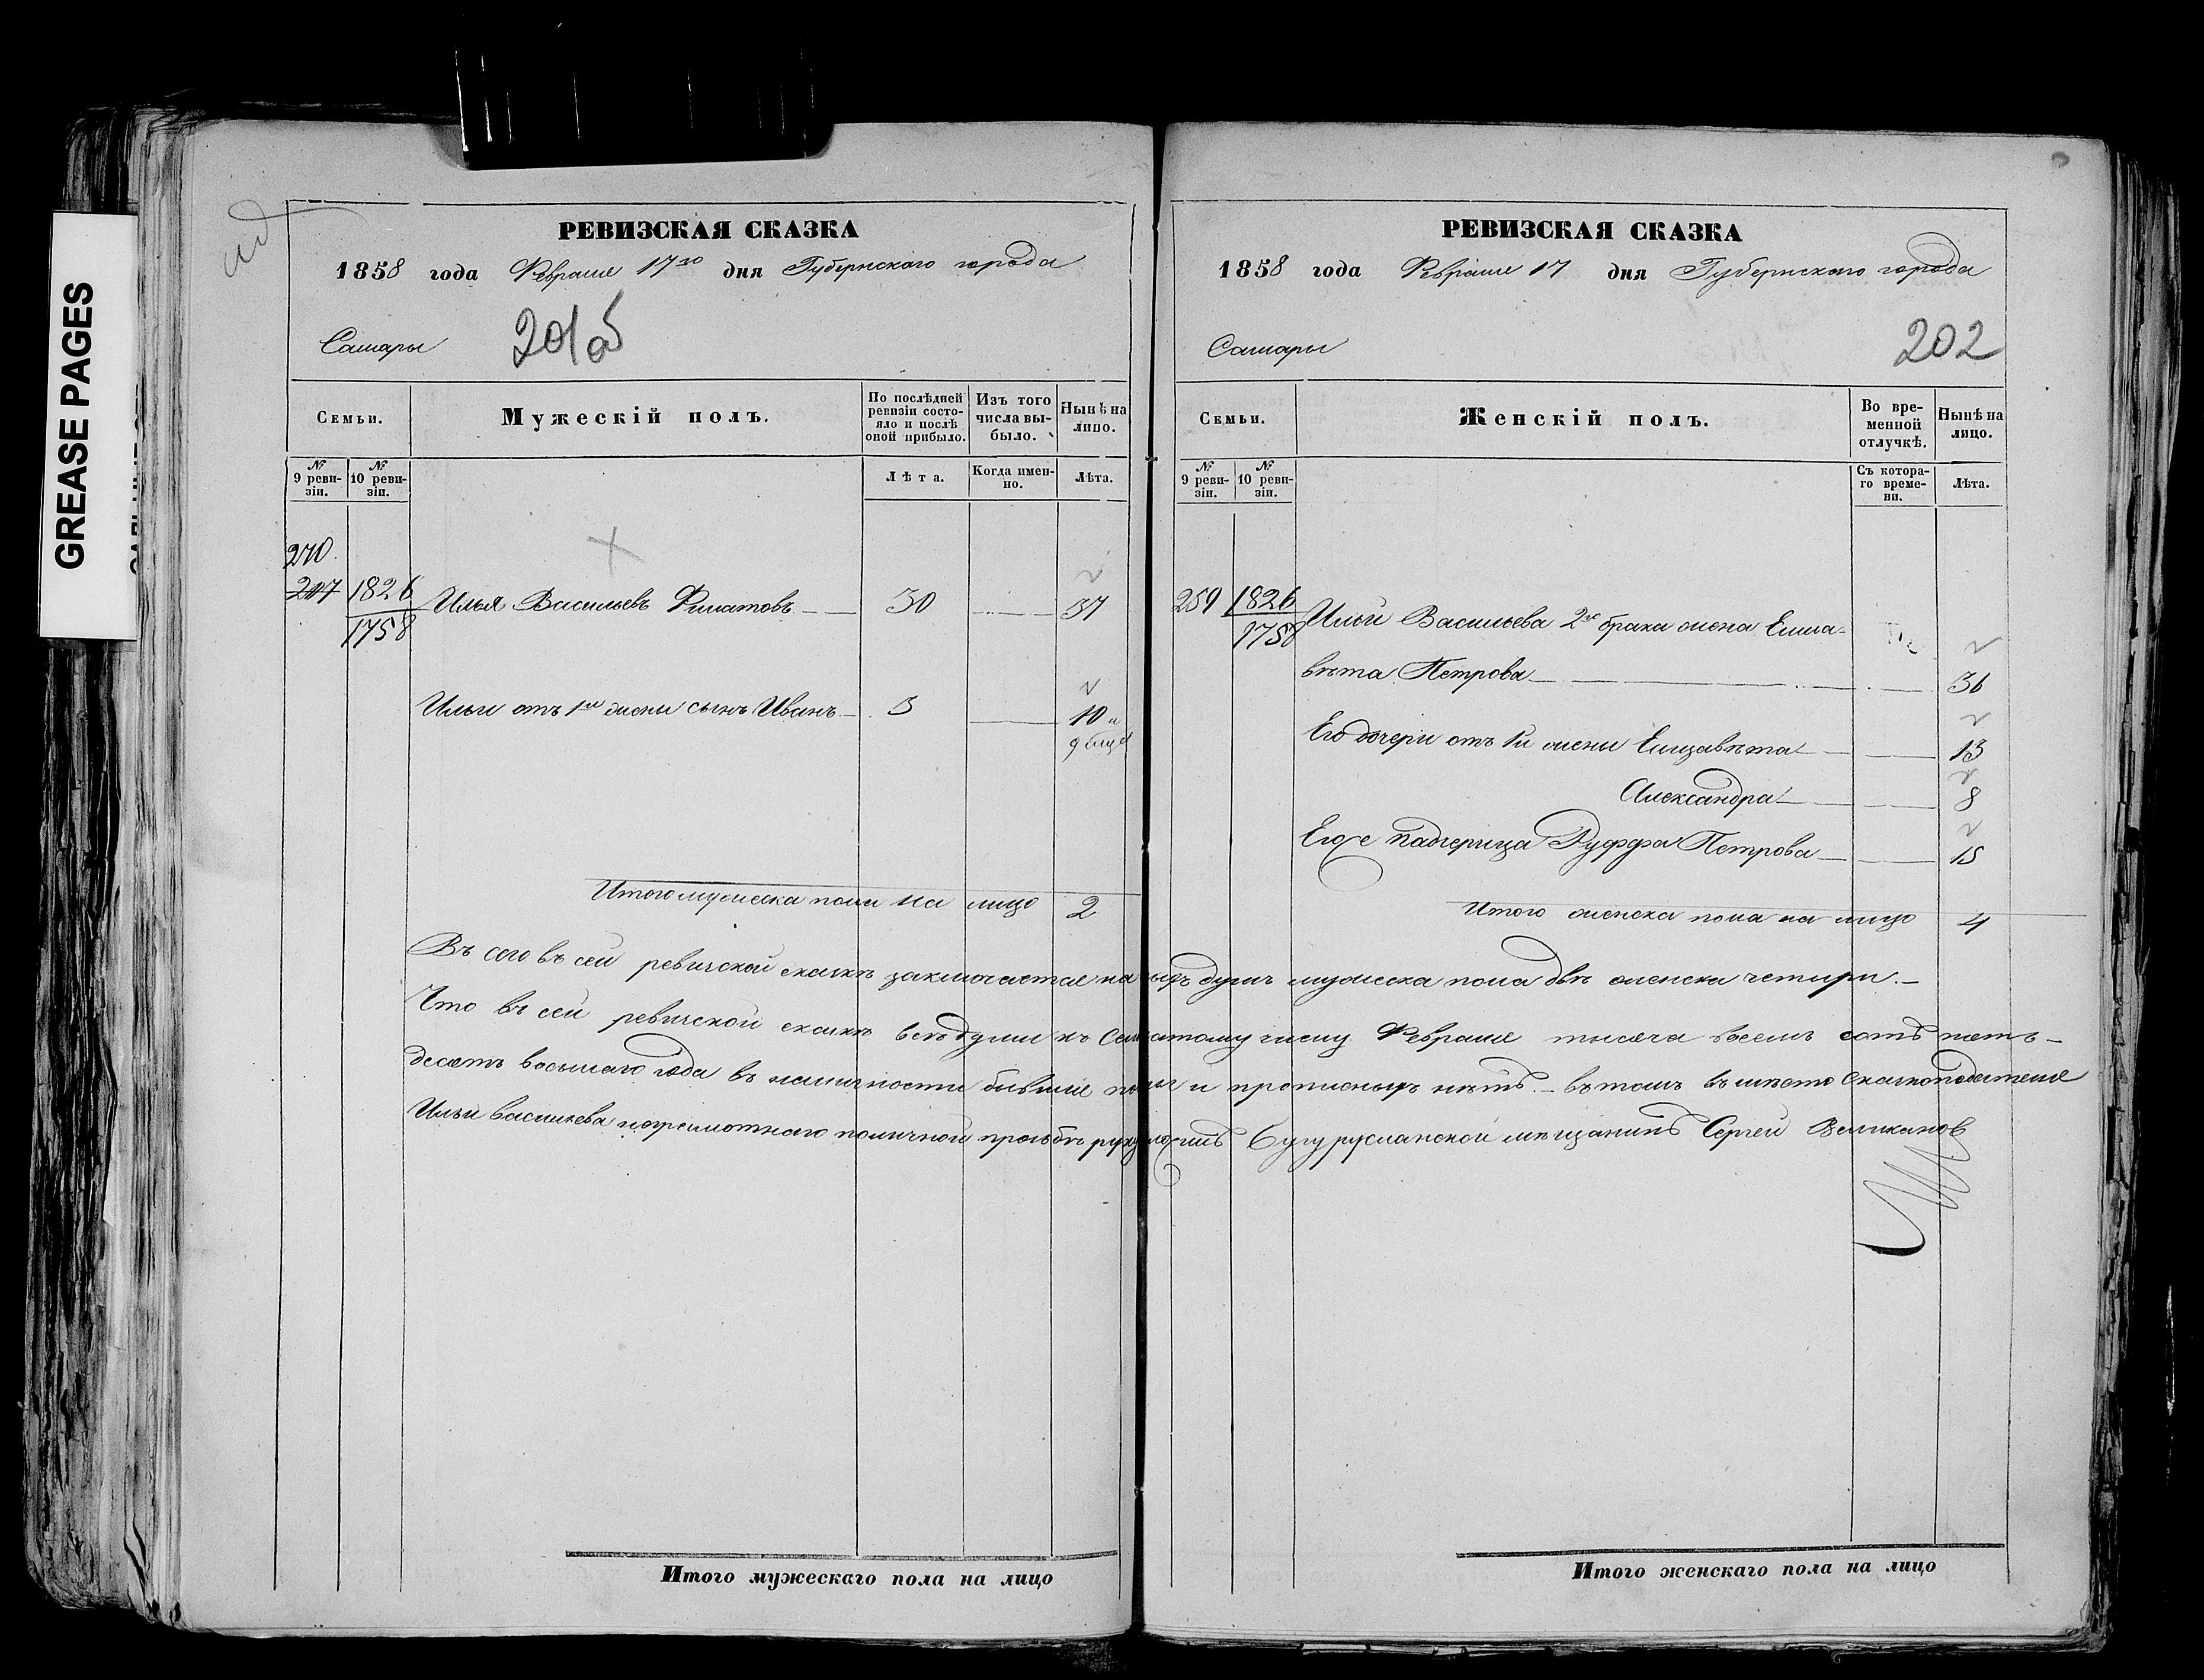 GREASE PAGES
РЕВИЗСКАЯ СКАЗКА
1858 года Февраля 17го дня Губернскаго города
Самары 201об
Семьи.
Мужескій полъ.
По послѣдней ревизіи состояло и послѣ оной прибыло.
Изъ того числа выбыло.
Нынѣ на лицо.
№ 9 ревизіи.
№ 10 ревизіи.
Лѣта.
Когда именно.
Лѣта.
270
247 1826 Илья Васильевъ Филатовъ 30 37
1758
Ильи отъ 1й жены сынъ Иванъ 3 10 и
Итого мужеска пола на лицо 2
РЕВИЗСКАЯ СКАЗКА
1858 года Февраля 17 дня Губернскаго города
Самары 202
Семьи.
Женскій полъ.
Во временной отлучкѣ.
Нынѣ на лицо.
№ 9 ревизіи.
№ 10 ревизіи.
Съ котораго времени.
Лѣта.
259 1826 Ильи Васильева 2го брака жена Елиза-
1758
вѣта Петрова 36
Его дочери отъ 1й жены Елизавѣта 13
Александра 8
Его же падчерица Руффа Петрова 15
Итого женска пола на лицо 4
Въ сего въ сей ревизской сказкѣ заключается на лицо душъ мужеска пола двѣ женска четыри.
Что въ сей ревизской сказкѣ всѣ души къ семнатому числу Февраля тысяча восемь сотъ пять-
десятъ восьмаго года въ наличности бывшие и прописныхъ нѣтъ. въ томъ въ мѣсто сказкоподателя
Ильи Васильева неграмотнаго по личной прозьбѣ руку приложилъ Бугурусланской мѣщанинъ Сергей Великанов
Итого мужескаго пола на лицо
Итого женскаго пола на лицо